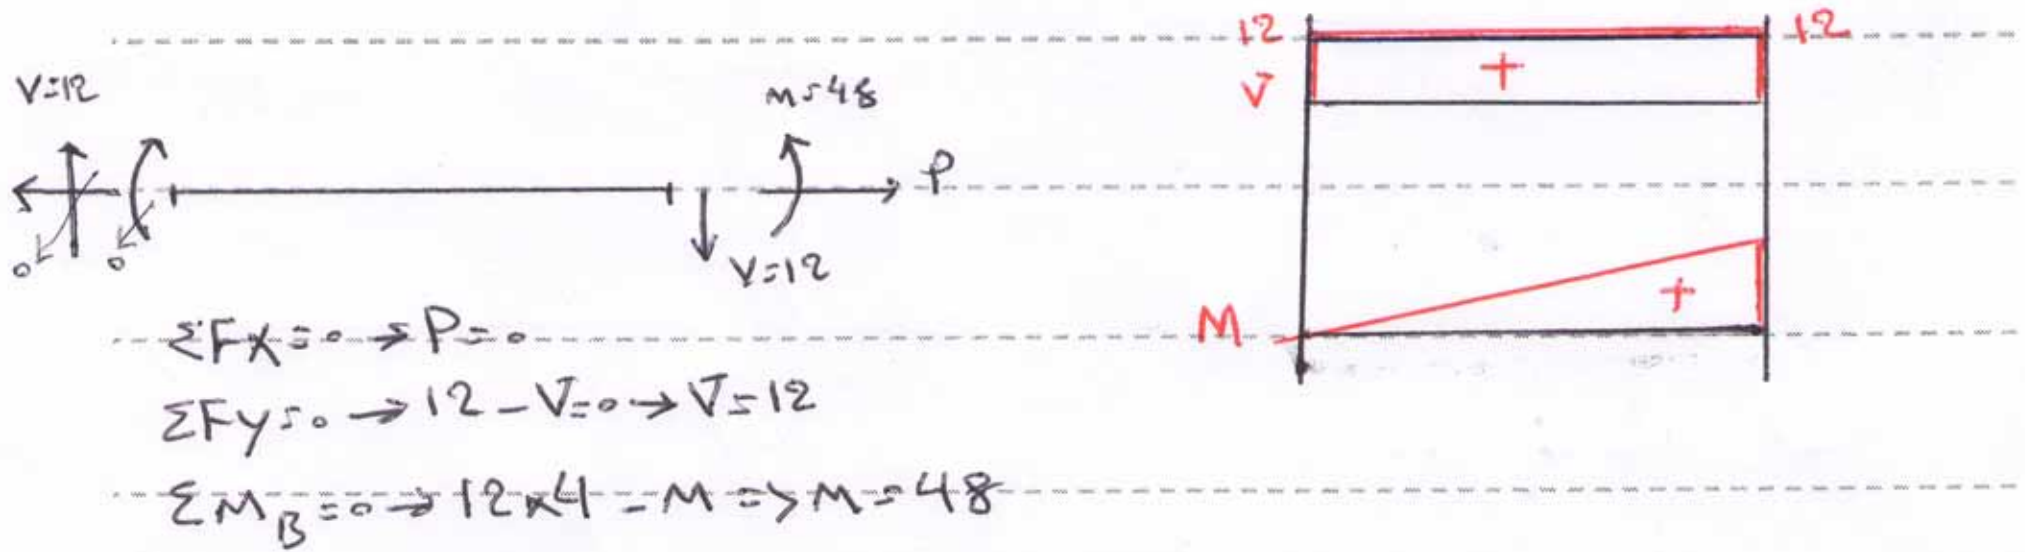 V=12
M=48
P
o
o
V=12
ΣFx=o → P=o
ΣFy=o → 12-V=o → V=12
ΣM_B=o → 12×4-M => M=48
12
12
V
+
M
+